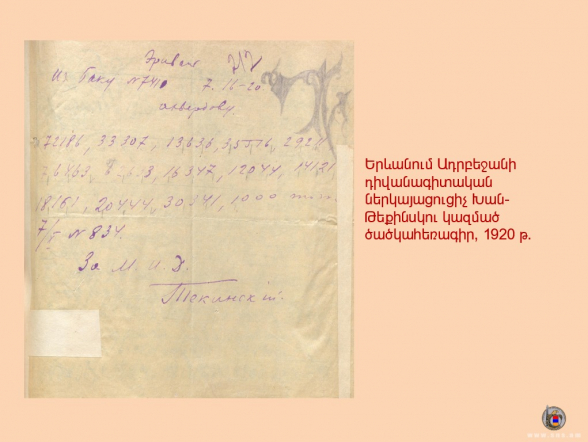 Эривань
Из Баку № 740 7. 16-20
72186, 33307, 13636, 35516, 292
16347, 12044, 14121
18161, 20444, 30341, 1000
7/5 № 834.
За М. И. Д.
Текинскій.
Երևանում Ադրբեջանի
դիվանագիտական
ներկայացուցիչ Խան-
Թեքինսկու կազմած
ծածկահեռագիր, 1920 թ.